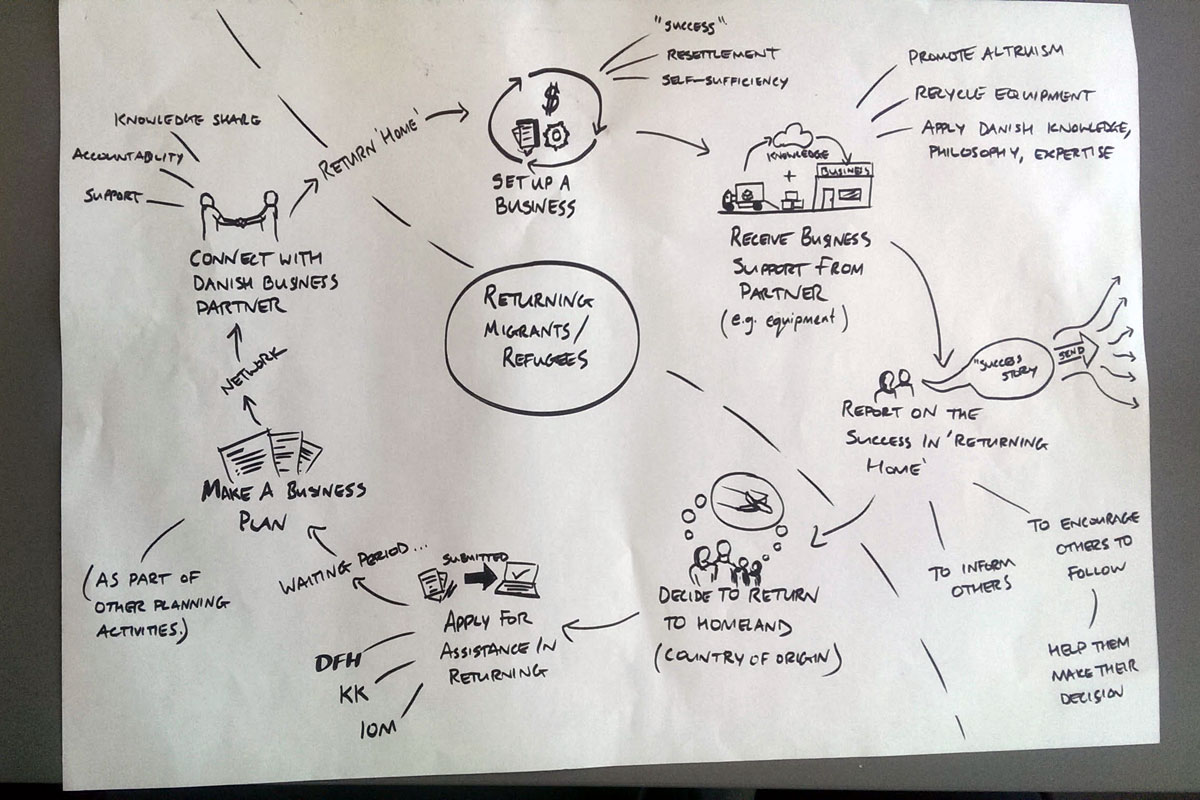 RETURNING
MIGRANTS/
REFUGEES
DECIDE TO RETURN
TO HOMELAND
(COUNTRY OF ORIGIN)
SUBMITTED
APPLY FOR
ASSISTANCE IN
RETURNING
DFH
KK
IOM
WAITING PERIOD...
MAKE A BUSINESS
PLAN
(AS PART OF
OTHER PLANNING
ACTIVITIES.)
NETWORK
KNOWLEDGE SHARE
ACCOUNTABILITY
SUPPORT
CONNECT WITH
DANISH BUSINESS
PARTNER
RETURN 'HOME'
$
SET UP A
BUSINESS
"SUCCESS"
RESETTLEMENT
SELF-SUFFICIENCY
KNOWLEDGE
+
BUSINESS
RECEIVE BUSINESS
SUPPORT FROM
PARTNER
(e.g. equipment)
PROMOTE ALTRUISM
RECYCLE EQUIPMENT
APPLY DANISH KNOWLEDGE,
PHILOSOPHY, EXPERTISE
"SUCCESS
STORY
SEND
REPORT ON THE
SUCCESS IN 'RETURNING
HOME'
TO INFORM
OTHERS
TO ENCOURAGE
OTHERS TO
FOLLOW
HELP THEM
MAKE THEIR
DECISION